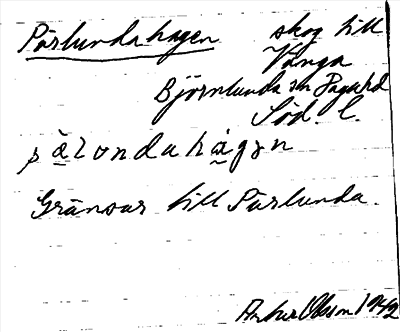 Pärlundahagen skog till
Vånga
Björnlunda sn Daga hd
Söd. l.
pä̀lundahàgən
Gränsar till Pärlunda.
Artur Olsson 1942